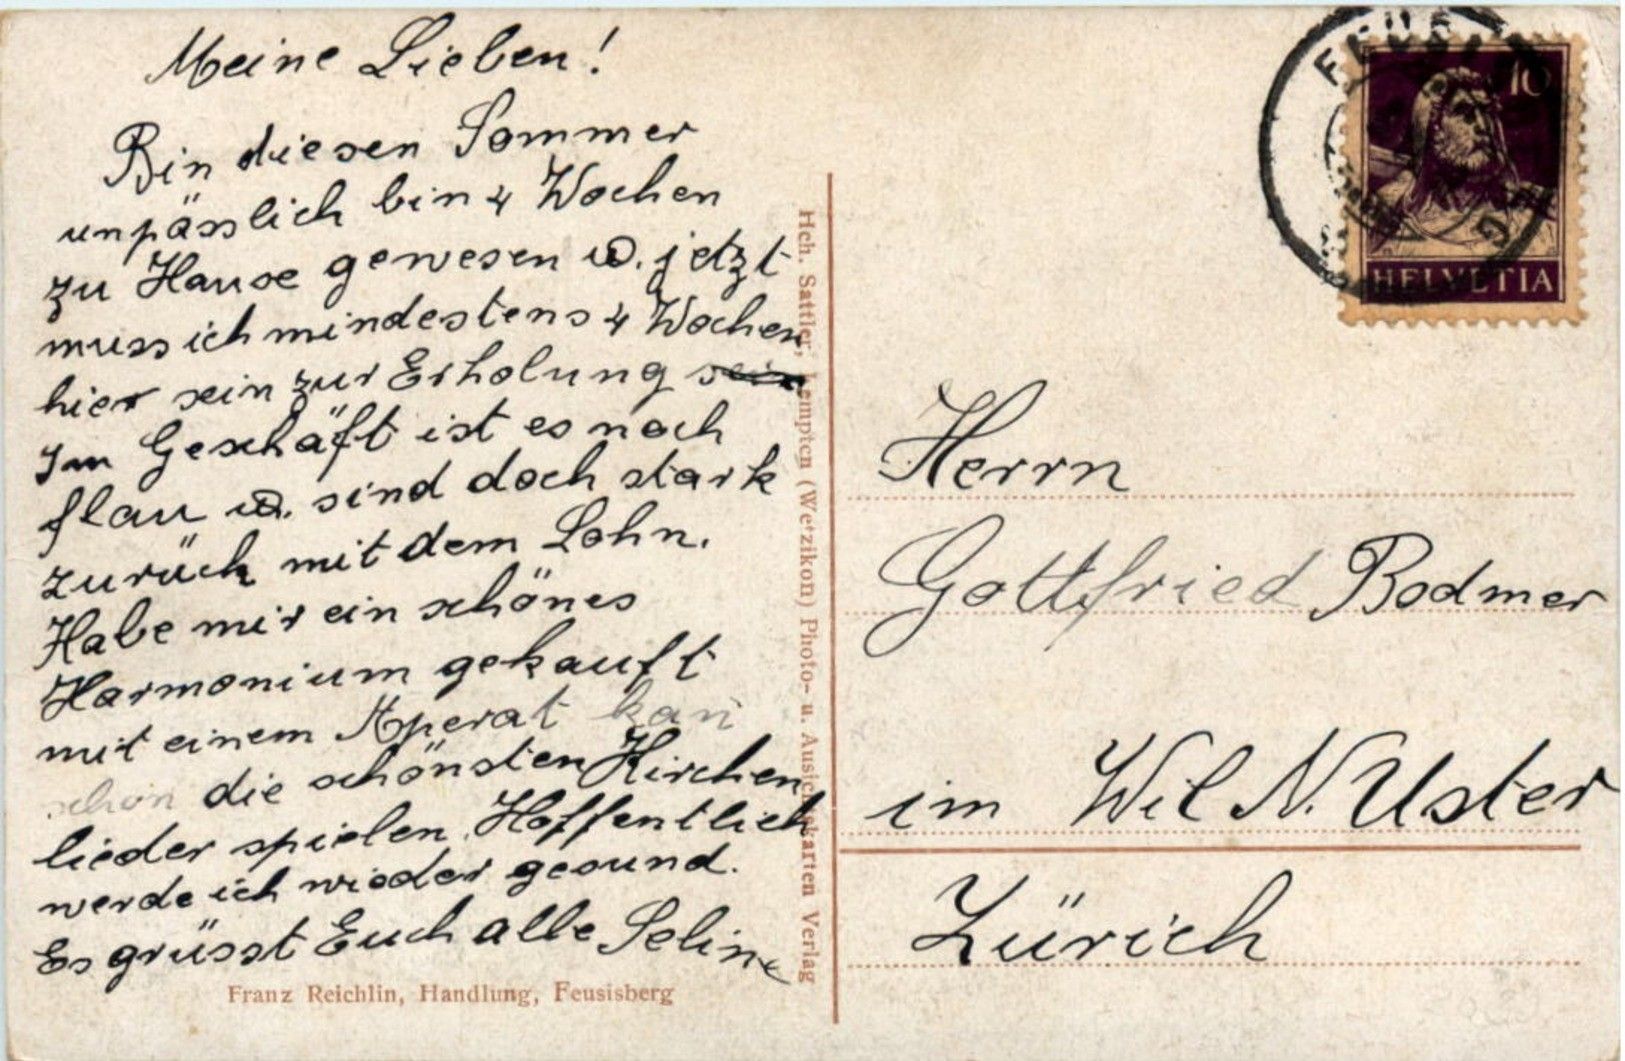 Meine Lieben!
Bin diesen Sommer
unpässlich bin 4 Wochen
zu Hause gewesen u. jetzt
muss ich mindestens 4 Wochen
hier sein zur Erholung sein
Im Geschäft ist es noch
flau u. sind doch stark
zurück mit dem Lohn.
Habe mir ein schönes
Harmonium gekauft
mit einem Aperat kan
schon die schönsten Kirchen
lieder spielen. Hoffentlich
werde ich wieder gesund.
Es grüsst Euch alle Seline
Franz Reichlin, Handlung, Feusisberg
Hch. Sattler, Kempten (Wetzikon) Photo- u. Ausichtskarten Verlag
FEUSI
10
HELVETIA
Herrn
Gottfried Bodmer
im Wil N. Uster
Zürich